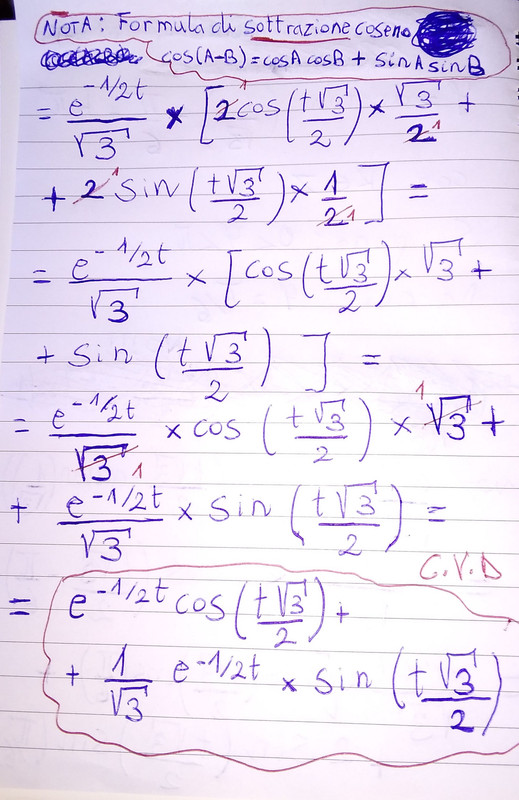 NOTA: Formula di sottrazione coseno
cos(A-B)=cosA cosB + sinA sinB
= e^{-1/2t}/√3 × [2cos(t√3/2) × √3/2 1 +
+ 2 1 sin(t√3/2) × 1/2 1] =
= e^{-1/2t}/√3 × [cos(t√3/2) × √3 +
+ sin (t√3/2) ] =
= e^{-1/2t}/√3 1 × cos (t√3/2) × 1 √3 +
+ e^{-1/2t}/√3 × sin (t√3/2) =
C.V.D
= e^{-1/2t} cos(t√3/2) +
+ 1/√3 e^{-1/2t} × sin (t√3/2)